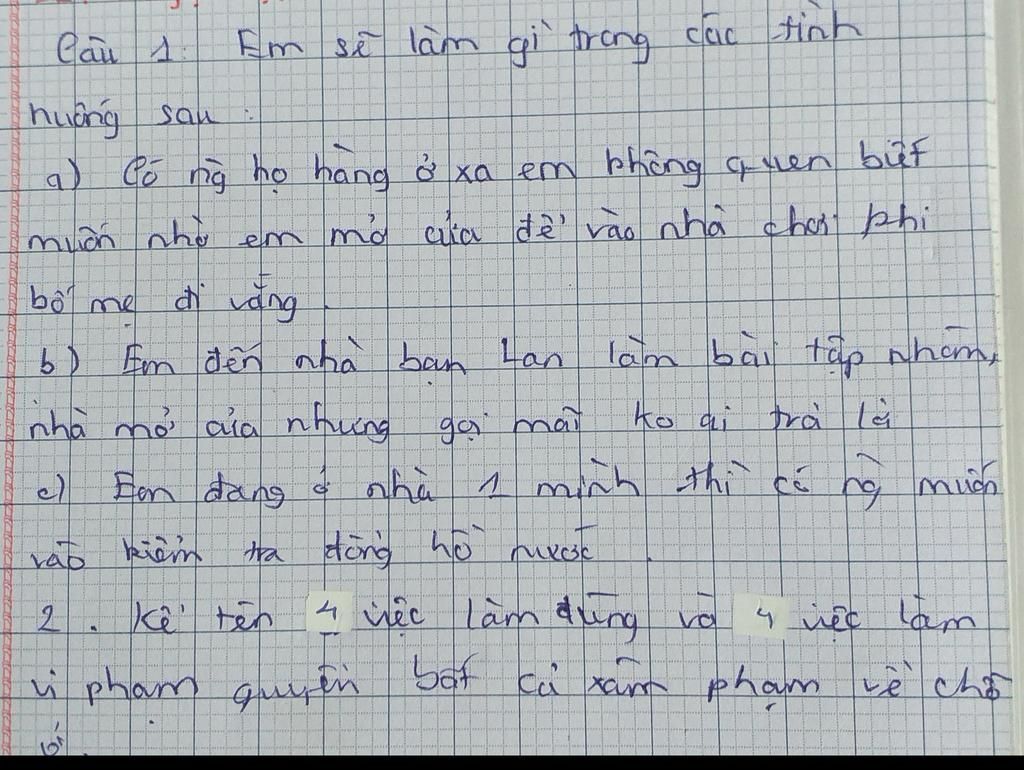 Câu 1: Em sẽ làm gì trong các tình
huống sau:
a) Có ng̀ họ hàng ở xa em không quen biết
muốn nhờ em mở cửa để vào nhà chơi khi
bố mẹ đi vắng.
b) Em đến nhà bạn Lan làm bài tập nhóm,
nhà mở cửa nhưng gọi mãi ko ai trả lời
c) Em đang ở nhà 1 mình thì có ng̀ muốn
vào kiểm tra đồng hồ nước.
2. Kể tên 4 việc làm đúng và 4 việc làm
vi phạm quyền bất cả xâm phạm về chỗ
ở.